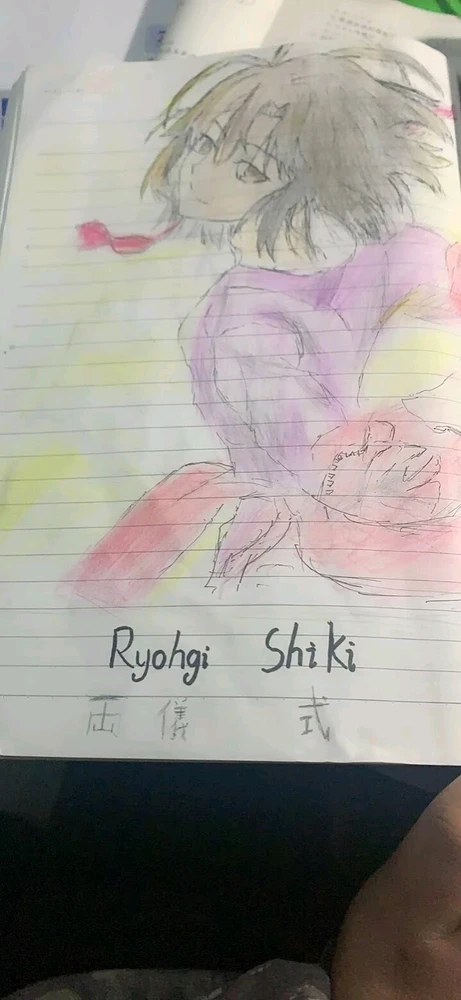 Ryohgi Shiki
両儀 式